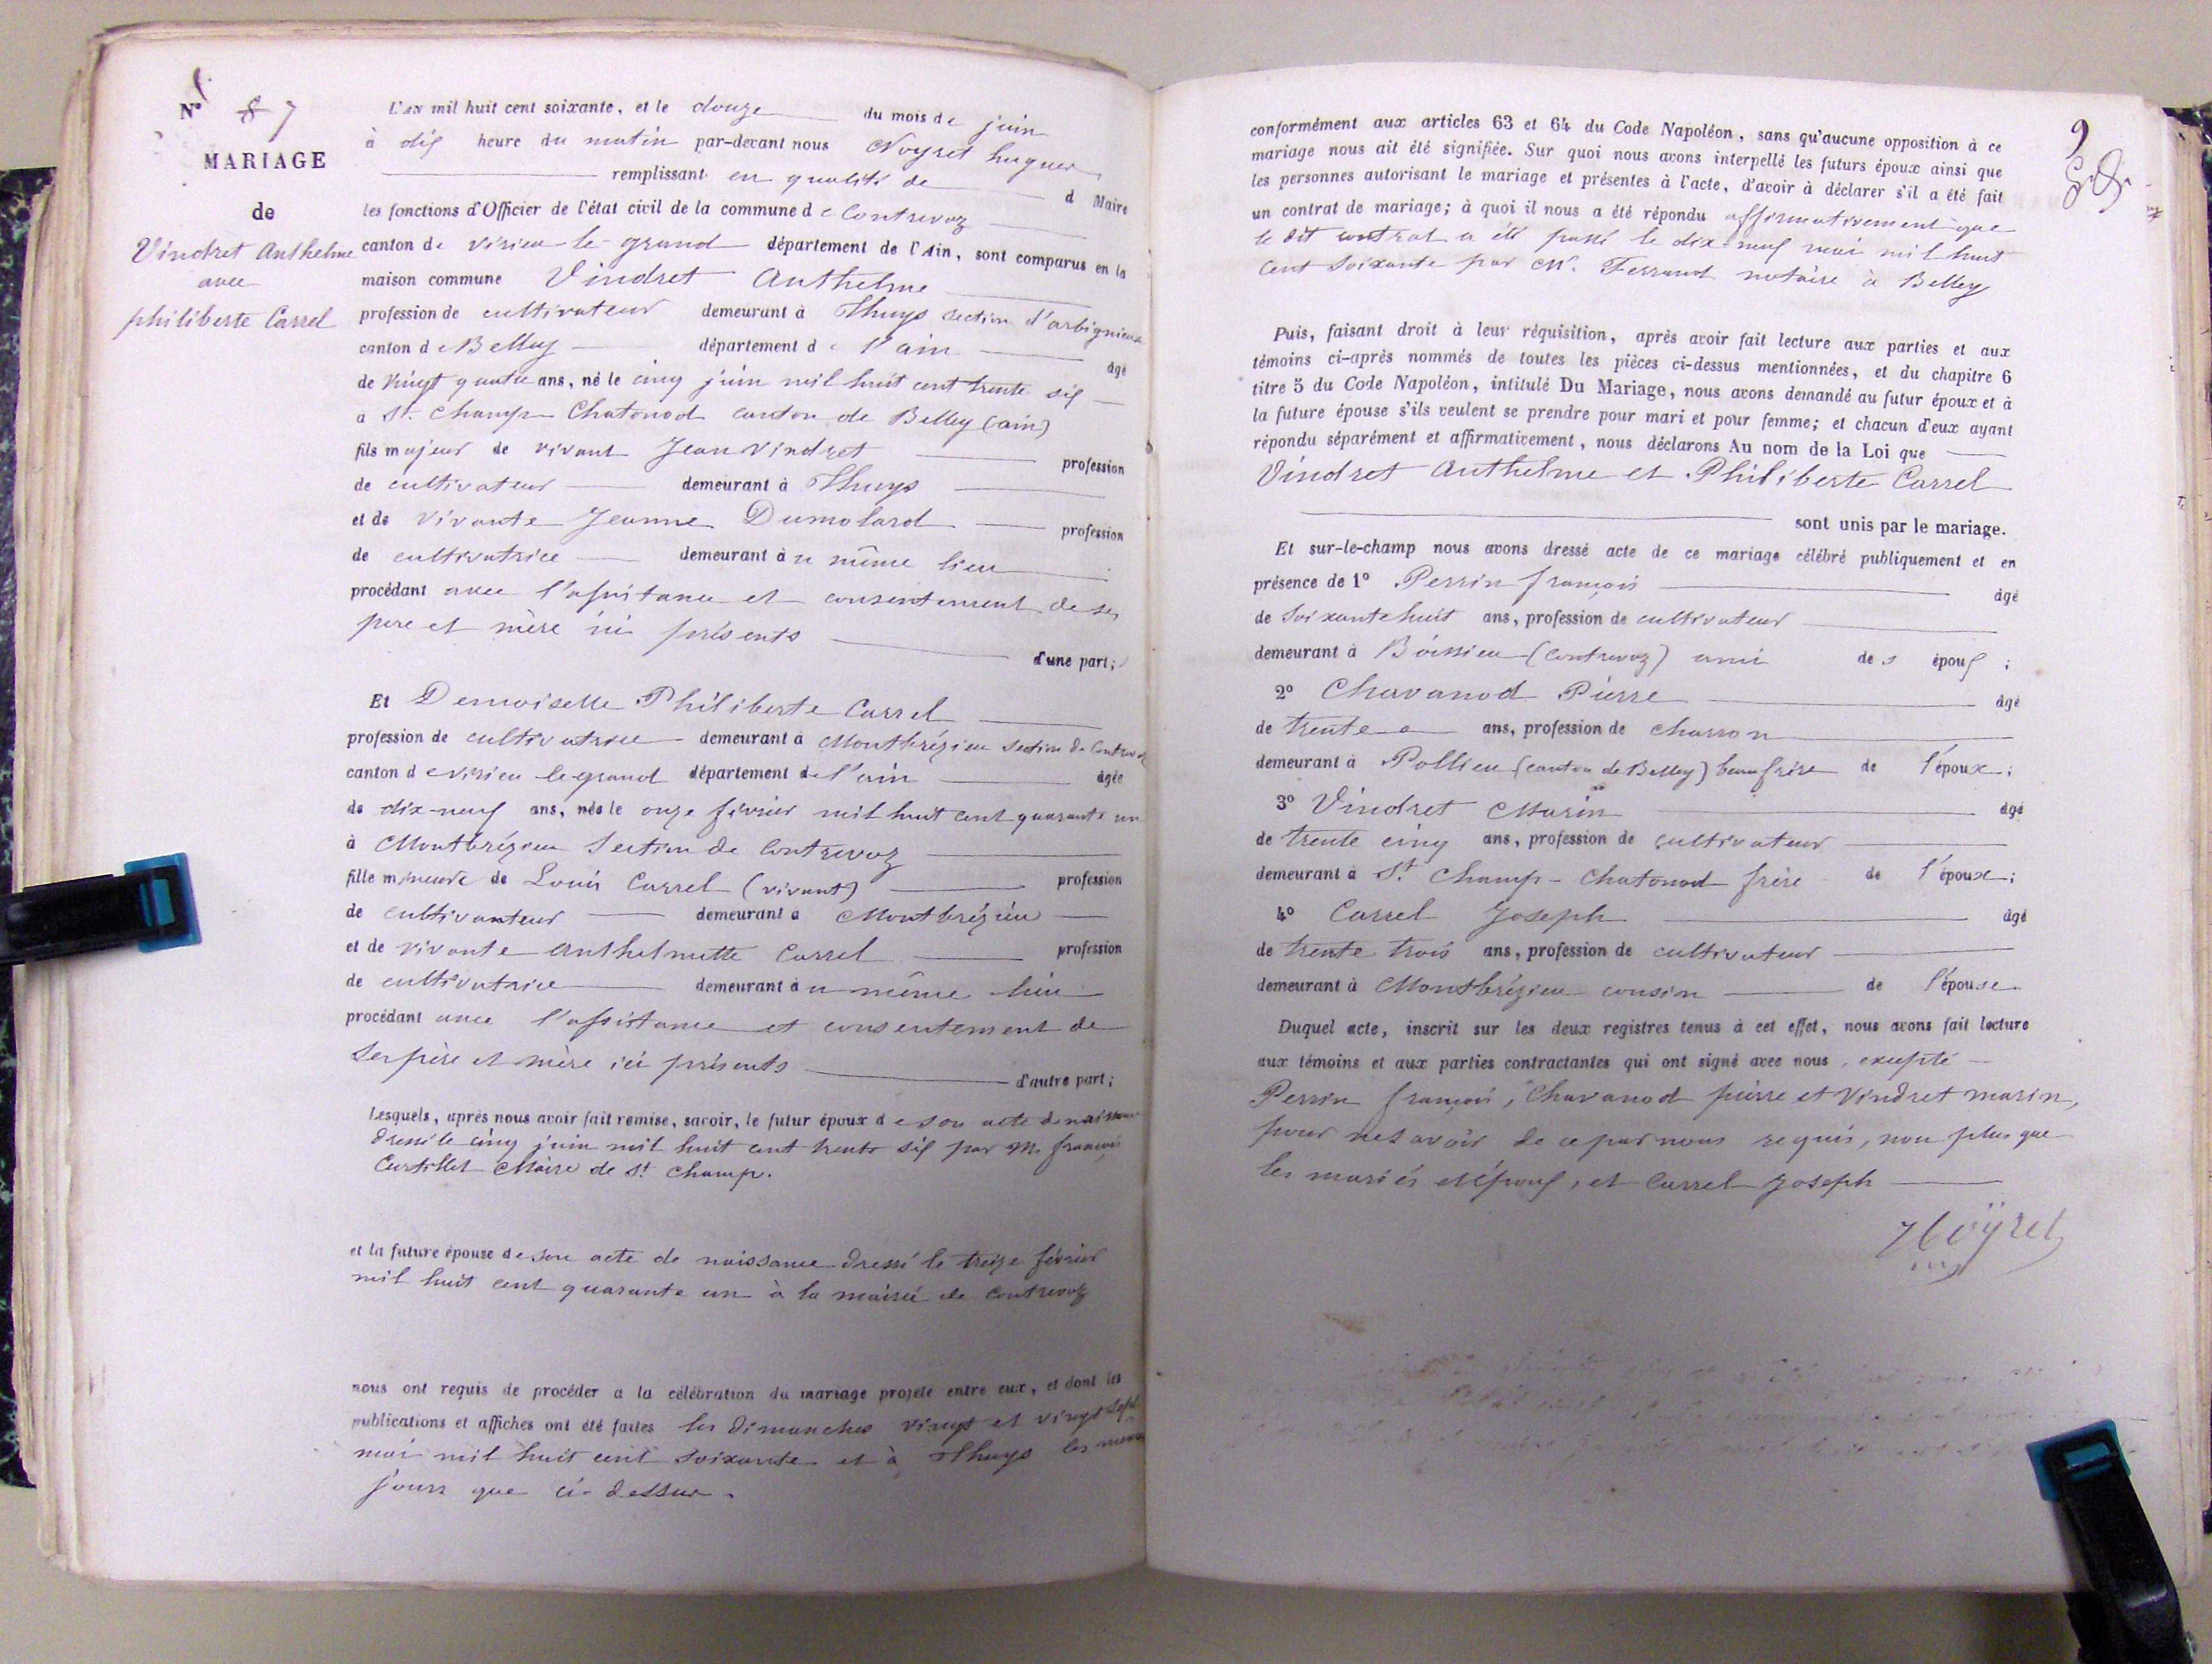 N° 8 7
MARIAGE
de
Vindret Anthelme
avec
philiberte Carrel
L'AN mil huit cent soixante, et le douze du mois de juin
à dix heure du matin par-devant nous Noyret hugues
remplissant en qualité de d Maire
les fonctions d'Officier de l'état civil de la commune de Contrevoz
canton de virieu-le-grand département de l'Ain, sont comparus en la
maison commune Vindret Anthelme
profession de cultivateur demeurant à Thuys section d'arbignieux
canton de Belley département de l'ain âgé
de vingt quatre ans, né le cinq juin mil huit cent trente six
à St. Champ Chatonod canton de Belley (ain)
fils majeur de vivant Jean Vindret profession
de cultivateur demeurant à Thuys
et de vivante Jeanne Dumolard profession
de cultivatrice demeurant à u même lieu
procédant avec l'assistance et consentement de ses
père et mère ici présents
d'une part;
Et Demoiselle Philiberte Carrel
profession de cultivatrice demeurant à Montbrézieu section de Contrevoz
canton de virieu le grand département de l'ain âgée
de dix-neuf ans, née le onze février mil huit cent quarante un
à Montbrézieu Section de Contrevoz
fille mineure de Louis Carrel (vivant) profession
de cultivateur demeurant à Montbrézieu
et de vivante anthelmette Carrel profession
de cultivatrice demeurant à u même lieu
procédant avec l'assistance et consentement de
ses père et mère ici présents d'autre part;
Lesquels, après nous avoir fait remise, savoir, le futur époux de son acte de naissance
dressé le cinq juin mil huit cent trente six par M. françois
Curtillet Maire de St champ.
et la future épouse de son acte de naissance dressé le treize février
mil huit cent quarante un à la mairie de Contrevoz
nous ont requis de procéder à la célébration du mariage projeté entre eux, et dont les
publications et affiches ont été faites les dimanches vingt et vingt sept
mai mil huit cent soixante et à Thuys les mêmes
jours que ci-dessus.
9
conformément aux articles 63 et 64 du Code Napoléon, sans qu'aucune opposition à ce
mariage nous ait été signifiée. Sur quoi nous avons interpellé les futurs époux ainsi que
les personnes autorisant le mariage et présentes à l'acte, d'avoir à déclarer s'il a été fait
un contrat de mariage; à quoi il nous a été répondu affirmativement que
le dit contrat a été passé le dix-neuf mai mil huit
cent soixante par Mr. Ferrand notaire à Belley
Puis, faisant droit à leur réquisition, après avoir fait lecture aux parties et aux
témoins ci-après nommés de toutes les pièces ci-dessus mentionnées, et du chapitre 6
titre 5 du Code Napoléon, intitulé Du Mariage, nous avons demandé au futur époux et à
la future épouse s'ils veulent se prendre pour mari et pour femme; et chacun d'eux ayant
répondu séparément et affirmativement, nous déclarons Au nom de la Loi que
Vindret Anthelme et Philiberte Carrel
sont unis par le mariage.
Et sur-le-champ nous avons dressé acte de ce mariage célébré publiquement et en
présence de 1° Perrin françois âgé
de soixante huit ans, profession de cultivateur
demeurant à Boissieu (Contrevoz) ami de s époux;
2° Chavanod Pierre âgé
de trente ans, profession de charron
demeurant à Pollieu (canton de Belley) beau frère de l'époux;
3° Vindret Marin âgé
de trente cinq ans, profession de cultivateur
demeurant à St Champ-Chatonod frère de l'époux;
4° Carrel Joseph âgé
de trente trois ans, profession de cultivateur
demeurant à Montbrézieu cousin de l'épouse.
Duquel acte, inscrit sur les deux registres tenus à cet effet, nous avons fait lecture
aux témoins et aux parties contractantes qui ont signé avec nous, excepté
Perrin françois, Chavanod pierre et Vindret marin,
pour ne savoir de ce par nous requis, non plus que
les mariés et époux, et Carrel Joseph
Noÿret